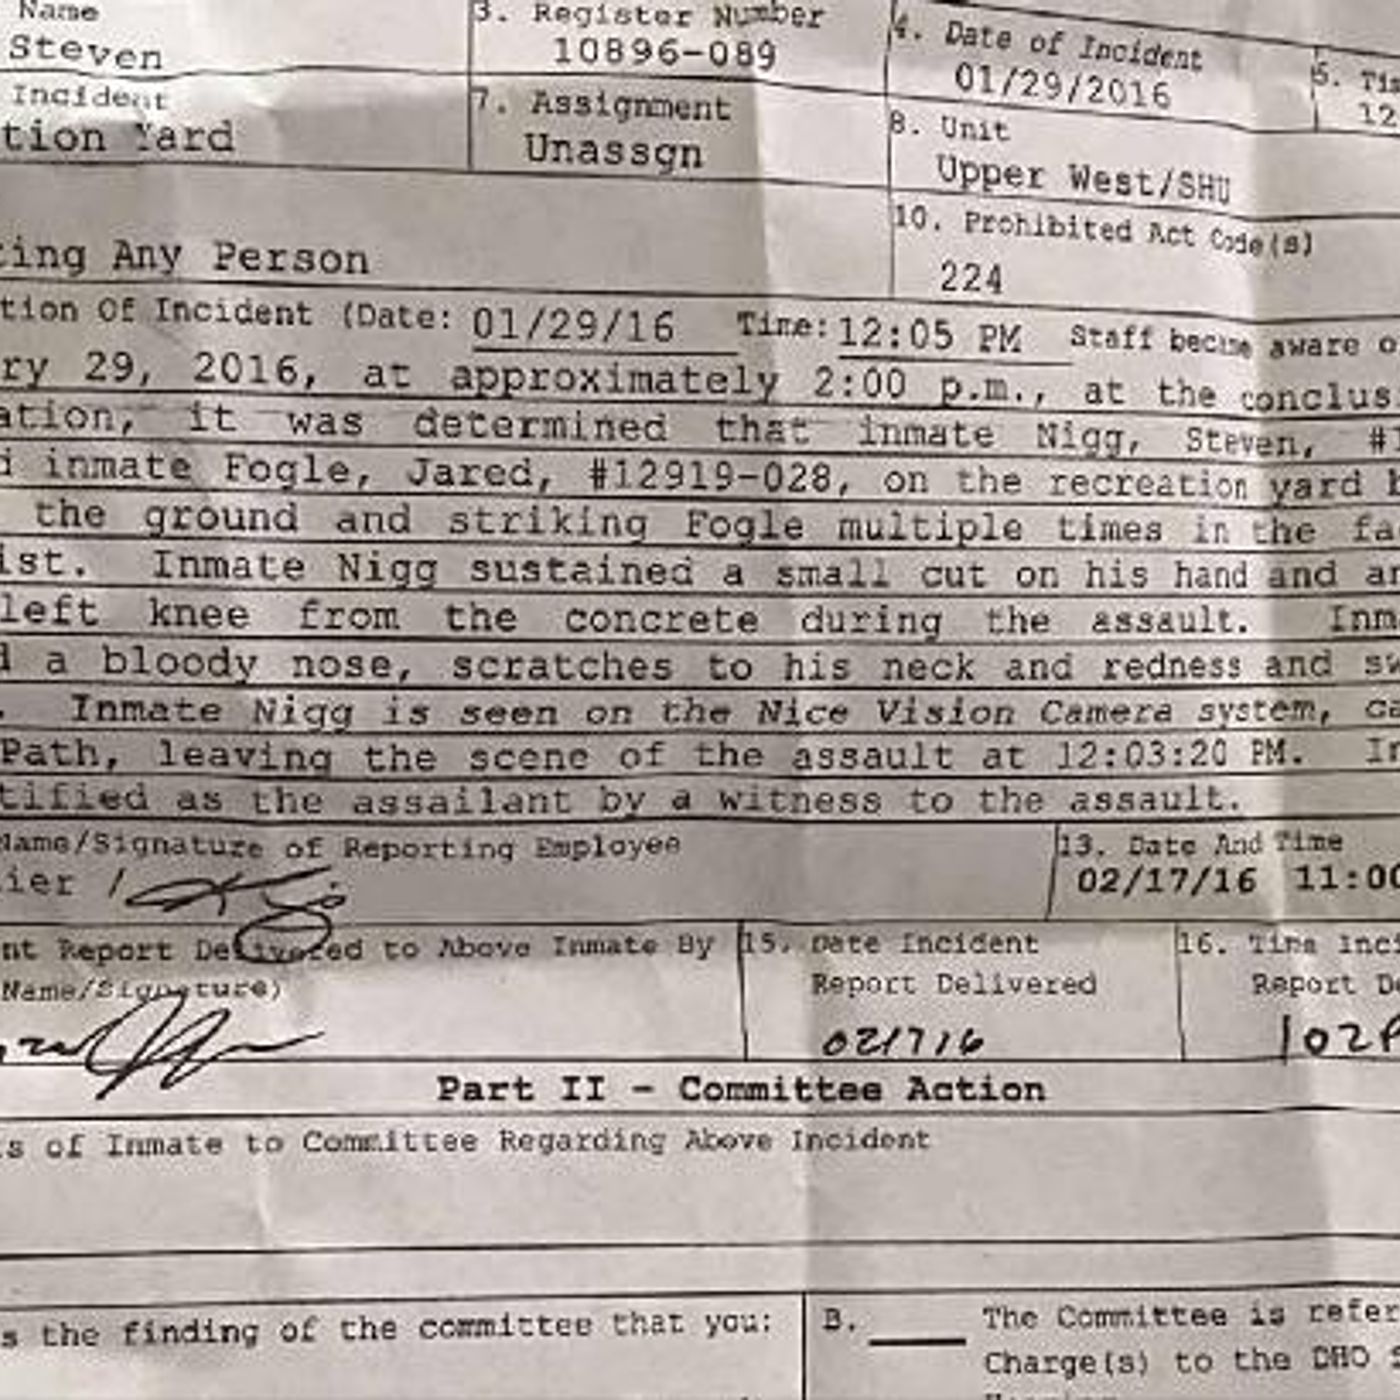 Name
Steven
3. Register Number
10896-089
4. Date of Incident
01/29/2016
5. Ti
12
Incident
tion Yard
7. Assignment
Unassgn
8. Unit
Upper West/SHU
ting Any Person
10. Prohibited Act Code(s)
224
tion Of Incident (Date: 01/29/16 Time: 12:05 PM Staff became aware o
ry 29, 2016, at approximately 2:00 p.m., at the conclus
ation, it was determined that inmate Nigg, Steven, #1
d inmate Fogle, Jared, #12919-028, on the recreation yard b
the ground and striking Fogle multiple times in the fa
ist. Inmate Nigg sustained a small cut on his hand and an
left knee from the concrete during the assault. Inm
d a bloody nose, scratches to his neck and redness and sw
. Inmate Nigg is seen on the Nice Vision Camera system, ca
Path, leaving the scene of the assault at 12:03:20 PM. In
tified as the assailant by a witness to the assault.
Name/Signature of Reporting Employee
ier /
13. Date And Time
02/17/16 11:00
nt Report Delivered to Above Inmate By
Name/Signature)
15. Date Incident
Report Delivered
021716
16. Time Inci
Report De
102P
Part II - Committee Action
s of Inmate to Committee Regarding Above Incident
s the finding of the committee that you:
B. ____ The Committee is refer
Charge(s) to the DHO